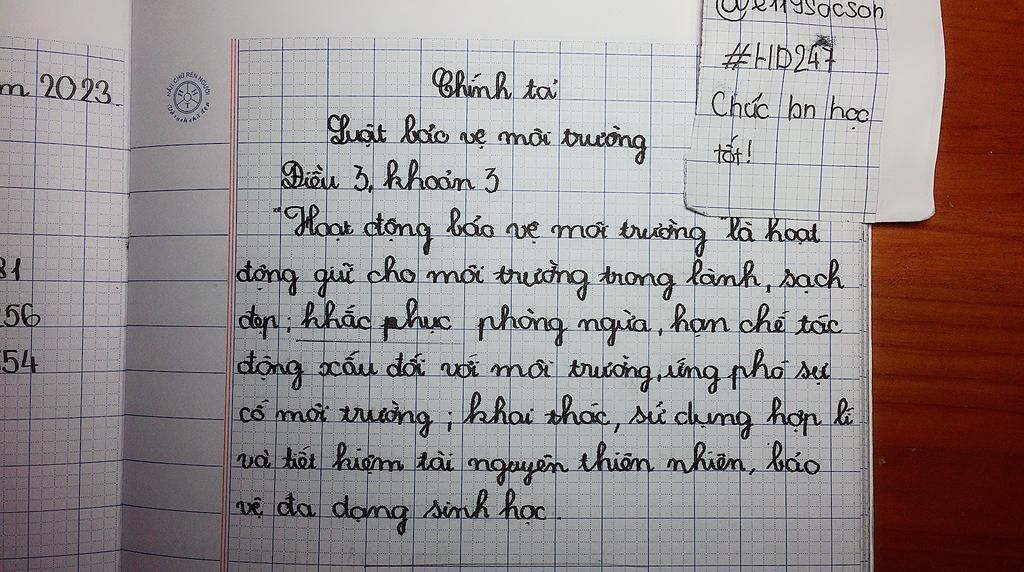 m 2023.
81
56
54
NẮN CHỮ RÈN NGƯỜI
Chính tả
Luật bảo vệ môi trường
Điều 3, khoản 3
"Hoạt động bảo vệ môi trường là hoạt
động giữ cho môi trường trong lành, sạch
đẹp; khắc phục phòng ngừa, hạn chế tác
động xấu đối với môi trường, ứng phó sự
cố môi trường; khai thác, sử dụng hợp lí
và tiết kiệm tài nguyên thiên nhiên, bảo
vệ đa dạng sinh học.
#HD247
Chúc bn học
tốt!